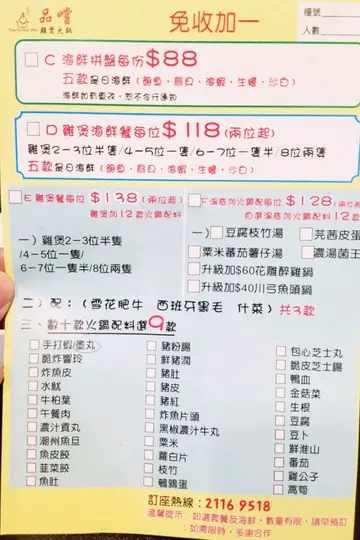 品嚐
雞煲火鍋
免收加一
檯號
人數
C 海鮮拼盤每份$88
五款是日海鮮(鮑魚、扇貝、海蝦、生蠔、沙白)
海鮮如有更改,恕不另行通知
D 雞煲海鮮餐每位$118(兩位起)
雞煲2-3位半隻/4-5位一隻/6-7位一隻半/8位兩隻
五款是日海鮮(鮑魚、扇貝、海蝦、生蠔、沙白)
E 雞煲餐每位$138(兩位起)
雞煲加12款火鍋配料
一)雞煲2-3位半隻
/4-5位一隻/
6-7位一隻半/8位兩隻
F 湯底加火鍋配每位$128(兩位起)
自選湯底加火鍋配料12款
一)豆腐枝竹湯
芫茜皮蛋
粟米番茄薯仔湯
濃湯菌王
升級加$60花雕醉雞鍋
升級加$40川弓魚頭鍋
二)配:(雪花肥牛 西班牙黑毛 什菜)共3款
三、數十款火鍋配料選9款
手打蝦/墨丸
脆炸響玲
炸魚皮
水魷
牛柏葉
午餐肉
濃汁貢丸
潮州魚旦
魚皮餃
韮菜餃
魚肚
豬粉腸
鮮豬潤
豬肚
豬皮
豬紅
炸魚片頭
黑椒濃汁牛丸
粟米
蘿白片
枝竹
鵪鶉蛋
包心芝士丸
脆皮芝士腸
鴨血
金菇菜
生根
豆腐
豆卜
鮮淮山
番茄
雞公子
蒿筍
訂座熱線:2116 9518
溫馨提示:如選套餐及海鮮,數量有限,請早預訂
:如需限時,多謝合作